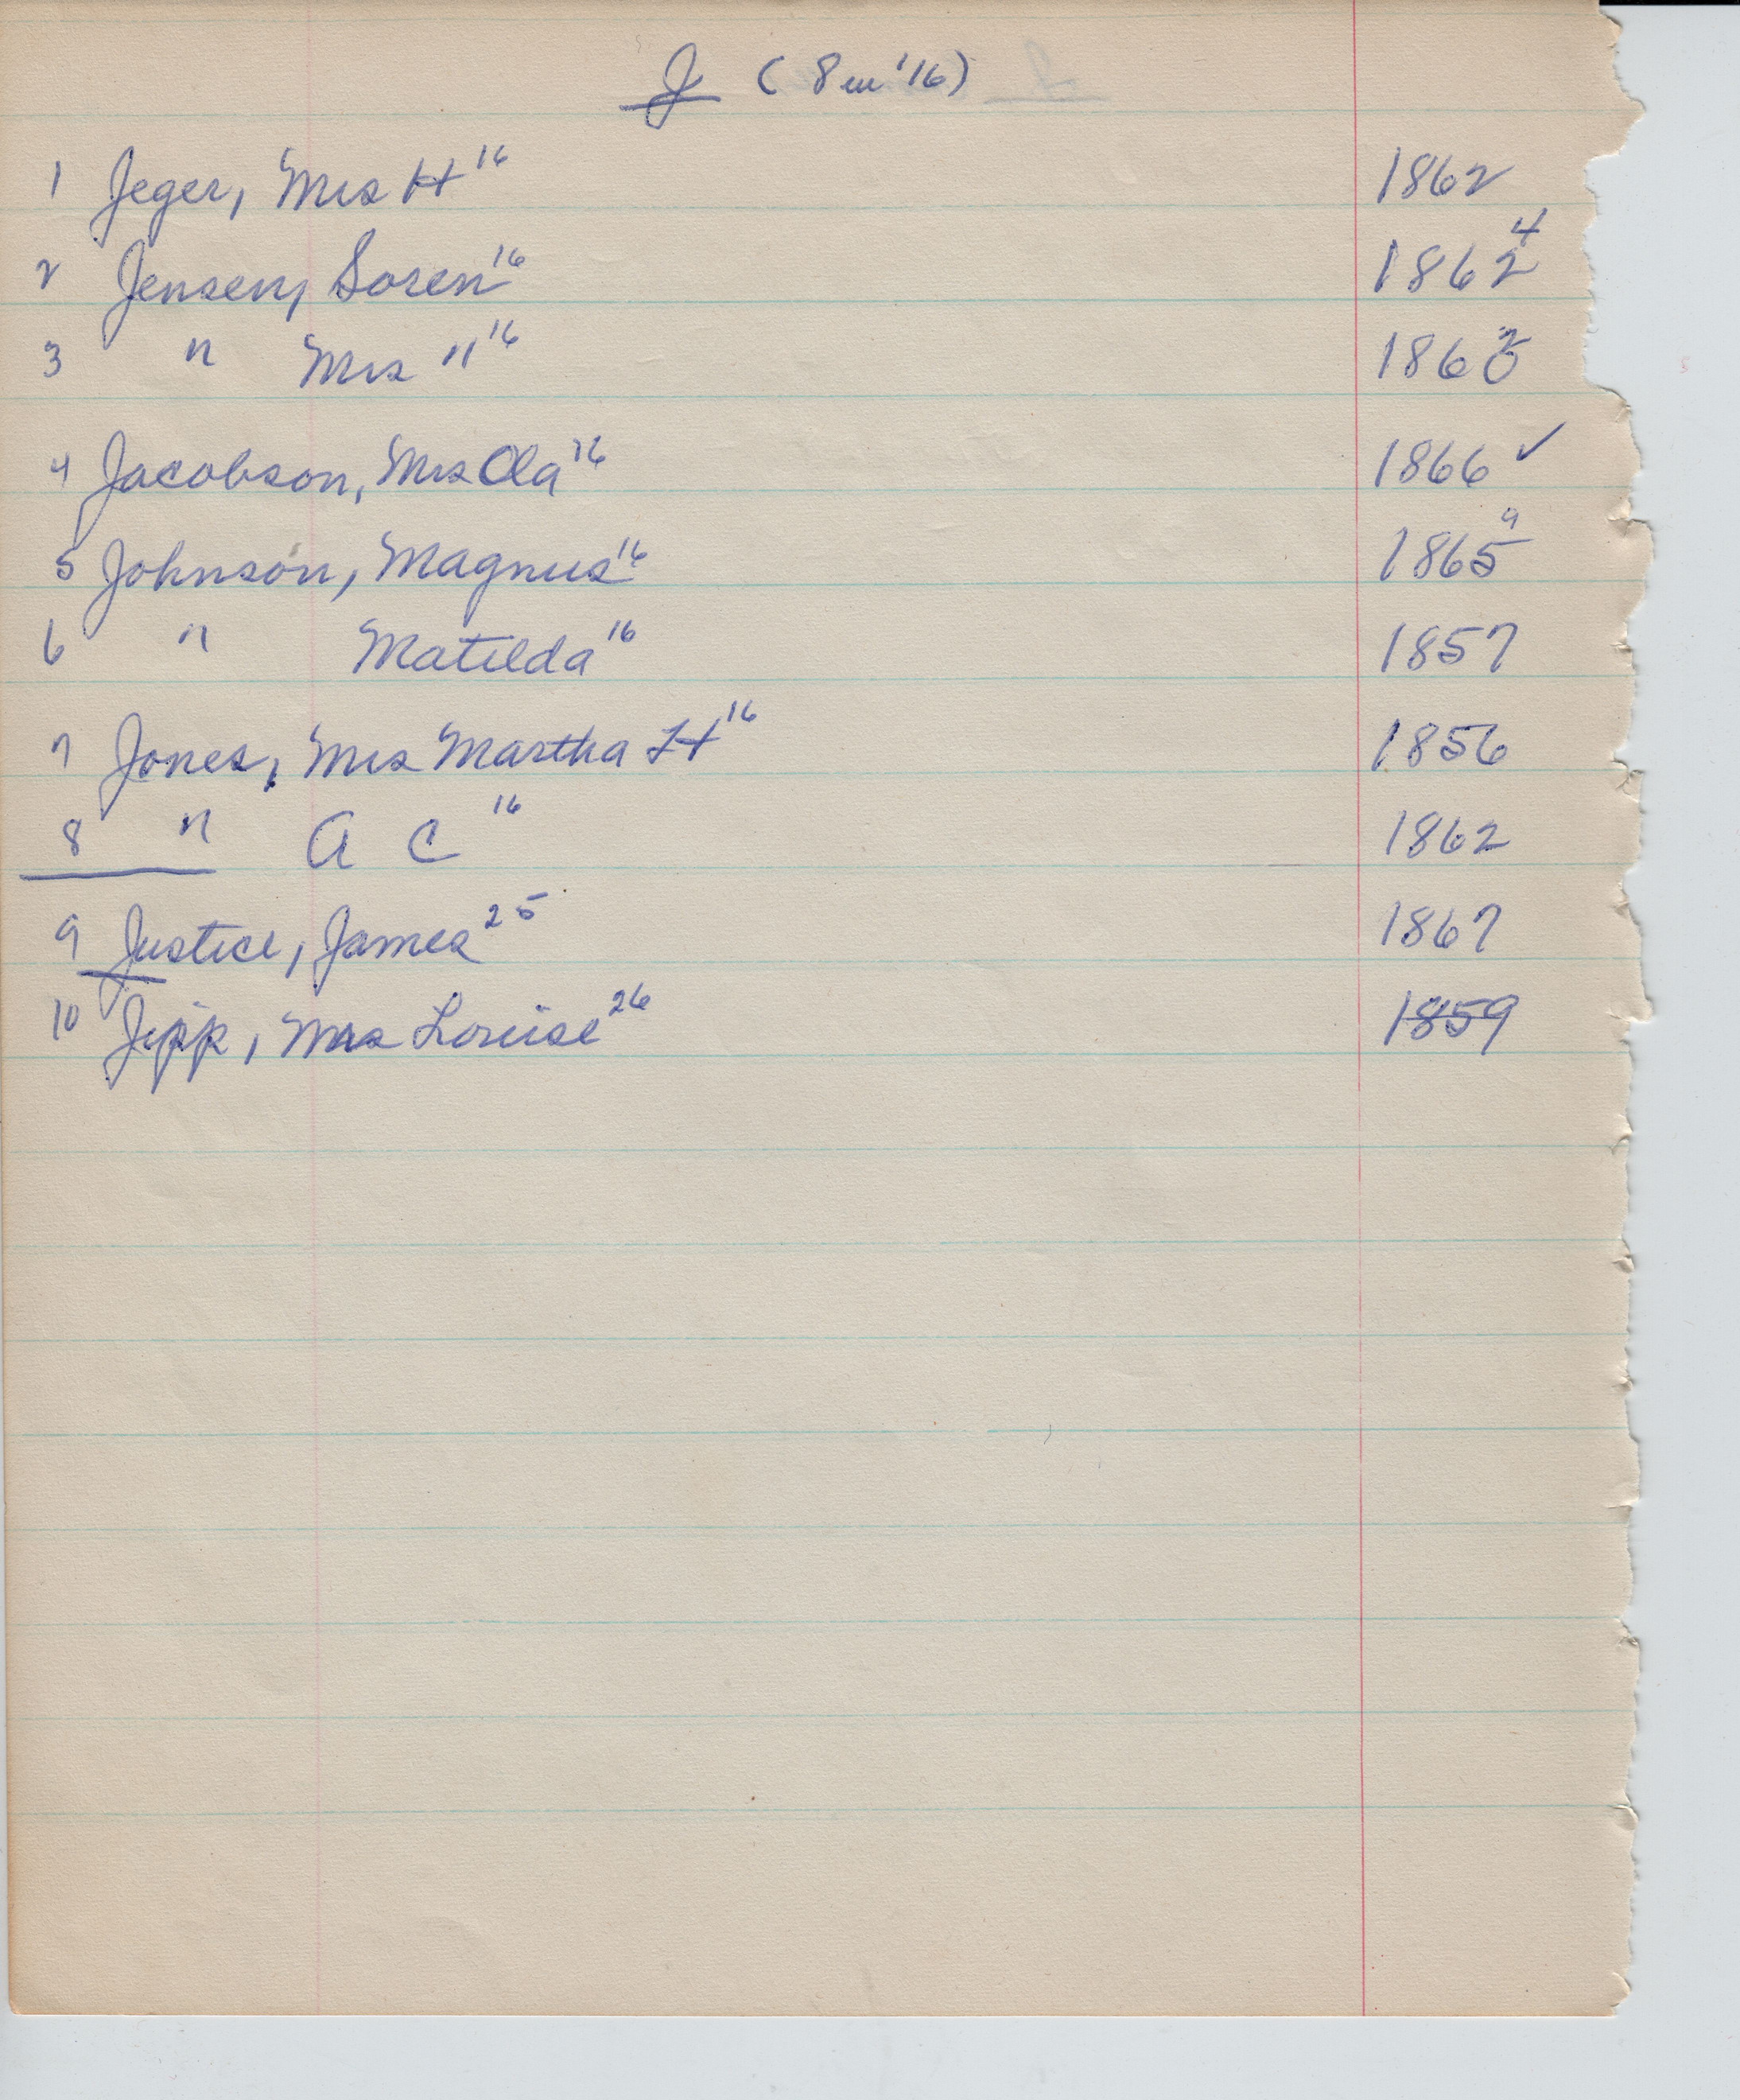 J (8 in '16)
1 Jeger, Mrs H 16 1862
2 Jensen, Soren 16 1862 4
3 " Mrs " 16 186 2
4 Jacobson, Mrs Ola 16 1866 ✓
5 Johnson, Magnus 16 1865 9
6 " Matilda 16 1857
7 Jones, Mrs Martha H 16 1856
8 " A C 16 1862
9 Justice, James 25 1867
10 Jipp, Mrs Louise 26 1859